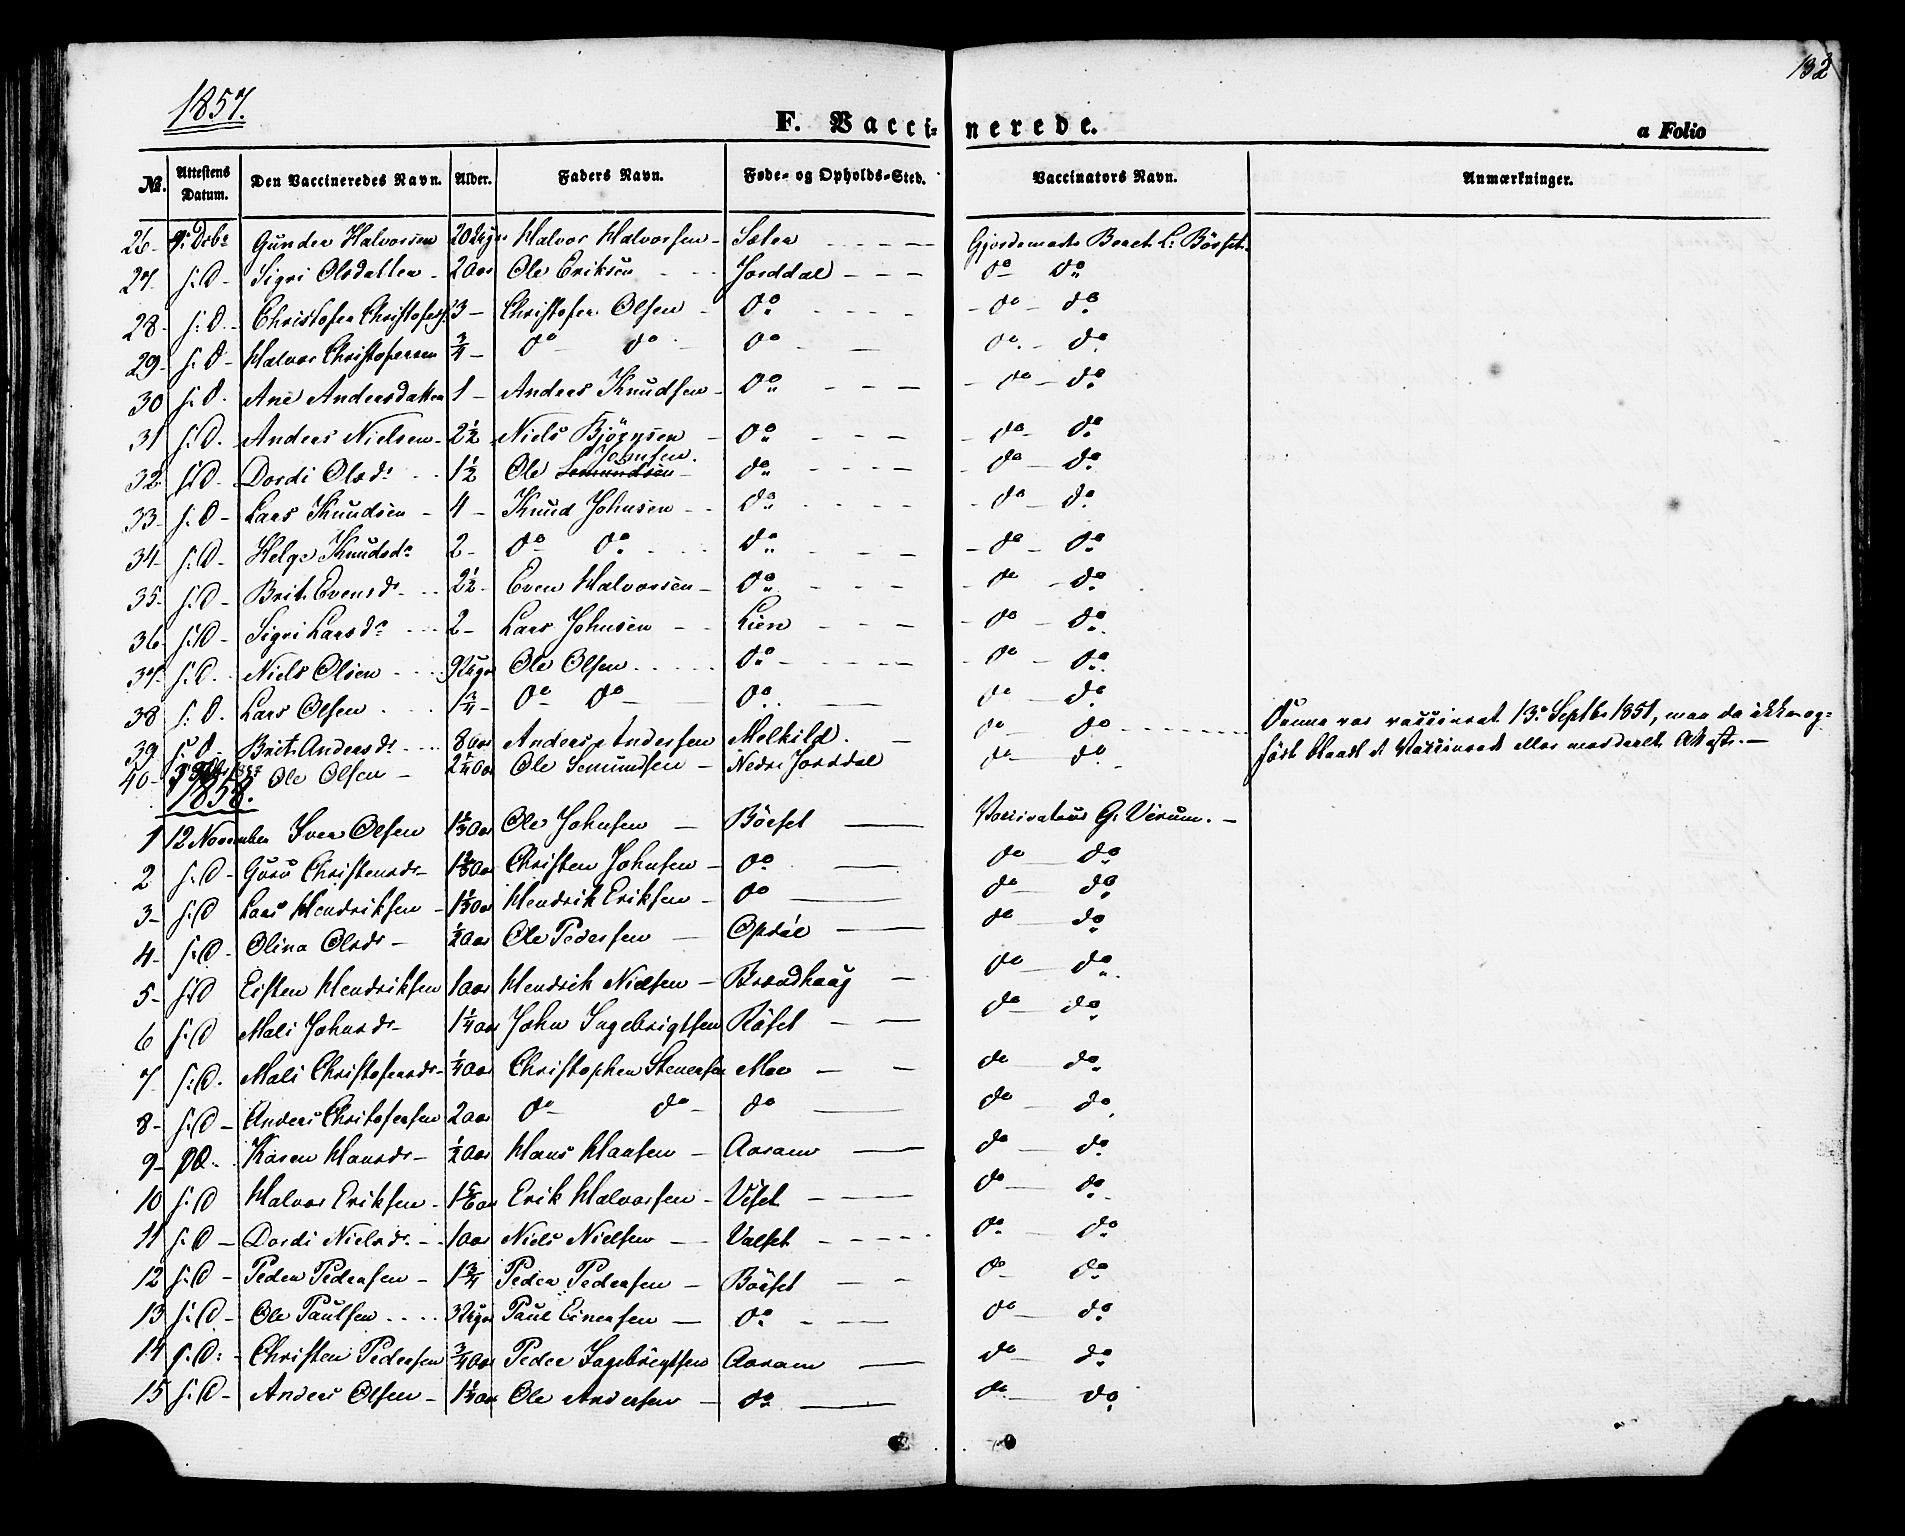 132
1857.
F. Vaccinerede.
a Folio
№. Attestens Datum. Den Vaccineredes Navn. Alder. Faders Navn. Føde- og Opholds-Sted. Vaccinators Navn. Anmærkninger.
26- 9: Dcbr Gunder Halvorsen 20 Uger Halvor Halvorsen - Sæter Gjordemoder Beret L: Börset.
27- s: D - Sigri Olsdatter - 2 aar Ole Eriksen Jorddal do do
28- s: D. - Christofer Christofers: 3 - Christofer Olsen - do do - do
29- s: D - Halvor Christofersen 3/4 - do do do do - do
30 s: D. Ane Andersdatter 1 - Anders Knudsen - do do - do
31 s: D. Anders Nielsen - 2 1/2 Niels Björnsen do do - do
32 s: D. Dordi Olsdr 1 1/2 Ole Semundsen Johnsen. do do - do
33- s: D - Lars Knudsen - 4 - Knud Johnsen do do - do
34- s: D - Helge Knudsdr 2 - do do do do - do
35- s: D - Brit Evensdr 2 1/2 - Even Halvorsen - do do - do
36- s: D - Sigri Larsdr 2 - Lars Johnsen Lien do - do
37- s: D. Niels Olsen 9 Uger Ole Olsen do do - do
38 s: D. Lars Olsen 1 3/4 - do do do do - do
39 s: D - Brit Andersdr 8 aar Anders Andersen Melkild. do do Denne var vaccineret 13: Septbr 1851, men da ikke og-
40- Ole Olsen - 2 1/4 aar Ole Semundsen - Nedre Jorddal do do
1858.
1 12 November Iver Olsen 1 1/3 aar Ole Johnsen - Börset Vaccinateur G. Virum. -
2 s: D - Guru Christensdr - aar Christen Johnsen - do do do
3- s: D Lars Hendriksen - aar Hendrik Eriksen - do do do
4- s: D - Olina Olsdr - 1/2 aar Ole Pedersen - Opdöl do do
5- s: D Eisten Hendriksen 1 aar Hendrik Nielsen - Brandhaug do do
6 s: D Mali Johnsdr - 1 1/4 aar John Ingebrigtsen Röset do do
7 s: D. Mali Christofersdr - aar Christopher Stenersen Moe do do
8- s: D - Anders Christofersen 2 aar do do do do do
9- s: D. Karen Hansdr - 1/2 aar Hans Hansen - Aaram do do
10 s: D Halvor Eriksen - aar Erik Halvorsen - Viset do do
11 s: D - Dordi Nielsdr - 1 aar Niels Nielsen Valset do do
12 s: D - Peder Pedersen - 1 3/4 Peder Pedersen - Börset do do
13 s: D - Ole Paulsen 3 Uger Paul Einersen - do do do
14 s: D: - Christen Pedersen 3/4 aar Peder Ingebrigtsen Aaram do do
15 s: D - Anders Olsen - aar Ole Andersen - do do do